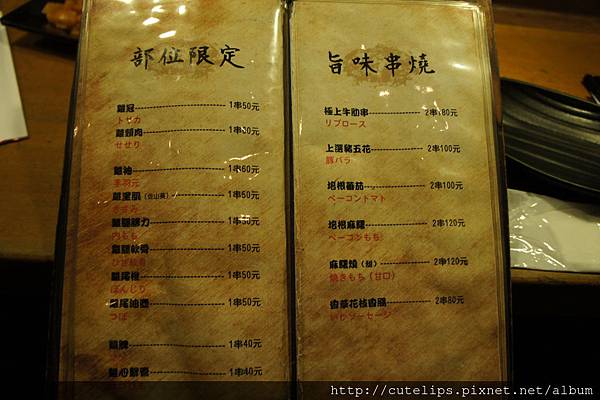 部位限定
雞冠 1串50元
トサカ
雞頸肉 1串50元
せせり
雞袖 1串60元
手羽元
雞里肌(佐山葵) 1串50元
雞腿腱力 1串50元
内もも
雞腿軟骨 1串50元
雞尾椎 1串50元
ぼんじり
雞尾油壺 1串50元
つぼ
雞脾 1串40元
雞心 1串40元
旨味串燒
極上牛肋串 2串180元
リブロース
上選豬五花 2串100元
豚バラ
培根蕃茄 2串100元
ベーコントマト
培根麻糬 2串120元
ベーコンもち
麻糬燒(甜) 2串120元
焼きもち(甘口)
香草花枝香腸 2串80元
いかソーセージ
http://cutelips.pixnet.net/album